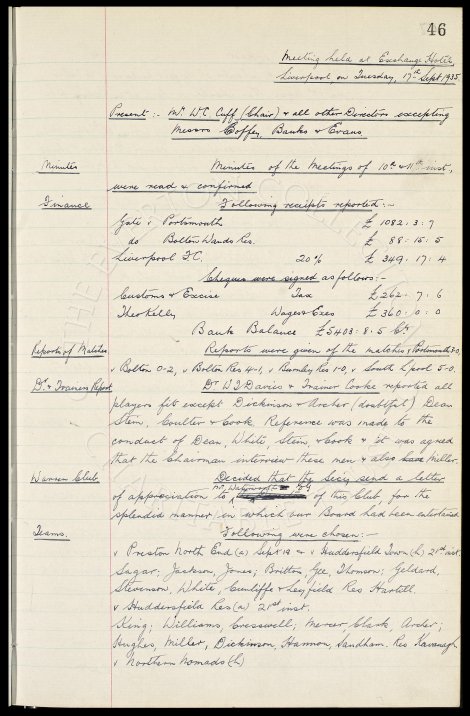 46
Meeting held at Exchange Hotel,
Liverpool, on Tuesday, 17th Sept. 1935
Present :- Mr. W.C. Cuff (Chair) & all other Directors excepting
Messrs Coffey, Banks & Evans
Minutes Minutes of the Meetings of 10th & 11th inst,
were read & confirmed
Finance Following receipts reported:-
Gate v Portsmouth £ 1082 . 3 : 7
do Bolton Wands Res. £ 88 . 15 : 5
Liverpool F.C. 20% £ 349 . 17 : 4
Cheques were signed as follows:-
Customs & Excise Tax £262 . 7 . 6
Theo Kelly Wages & Exes £360 . 0 : 0
Bank Balance £5403 : 8 . 5 Cr
Reports of Matches Reports were given of the matches v Portsmouth 3-0,
v Bolton 0-2, v Bolton Res 4-1, v Burnley Res 1-0, v South L'pool 5-0.
Dr. & Trainers Report Dr W.J. Davies & Trainer Cooke reported all
players fit except Dickinson & Archer (doubtful) Dean
Stein, Coulter & Cook. Reference was made to the
conduct of Dean, White, Stein, & Cook & it was agreed
that the Chairman interview these men & also Miller.
Warren Club Decided that the Secy send a letter
of appreciation to Mr. of this Club, for the
splendid manner in which our Board had been entertained
Teams. Following were chosen:-
v Preston North End (a) Sept 18 & v Huddersfield Town (h) 21st inst.
Sagar; Jackson, Jones; Britton, Gee, Thomson; Geldard,
Stevenson, White, Cunliffe & Leyfield Res Hartill.
v Huddersfield Res (a) 21st inst.
King; Williams, Cresswell; Mercer, Clark, Archer;
Hughes, Miller, Dickinson, Hannon, Sandham. Res Kavanagh
v Northern Nomads (h)